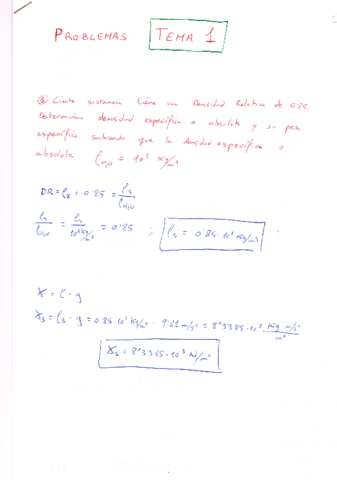 PROBLEMAS TEMA 1
① Cierta sustancia tiene una Densidad Relativa de 0'85.
Determinar densidad específica o absoluta y su peso
específico sabiendo que la densidad específica o
absoluta ρH₂O = 10³ Kg/m³
DR = ρr = 0'85 = ρs/ρH₂O
ρs/ρH₂O = ρs/10³ kg/m³ = 0'85 ; ρs = 0'85·10³ Kg/m³
γ = ρ · g
γs = ρs · g = 0'85·10³ Kg/m³ · 9'81 m/s² = 8'3385·10³ Kg·m/s²/m³
γs = 8'3385·10³ N/m³